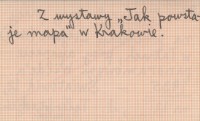 Z wystawy „Jak powsta-
je mapa" w Krakowie.